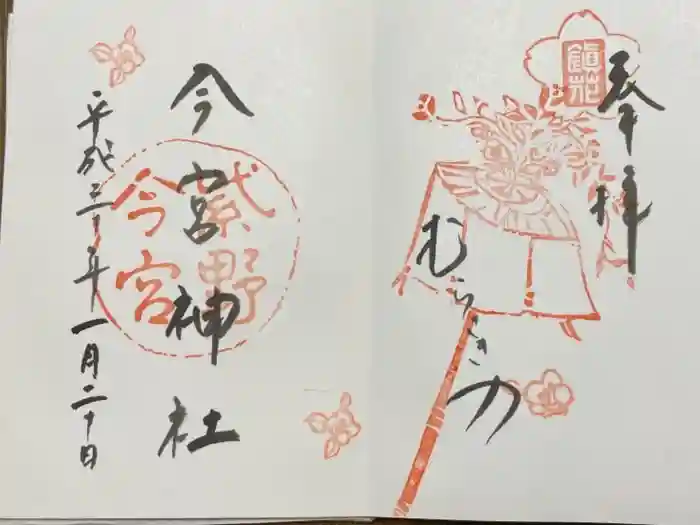 奉拝
鎮花
むらさきの
今宮神社
紫野
今宮
平成三十年一月二十日